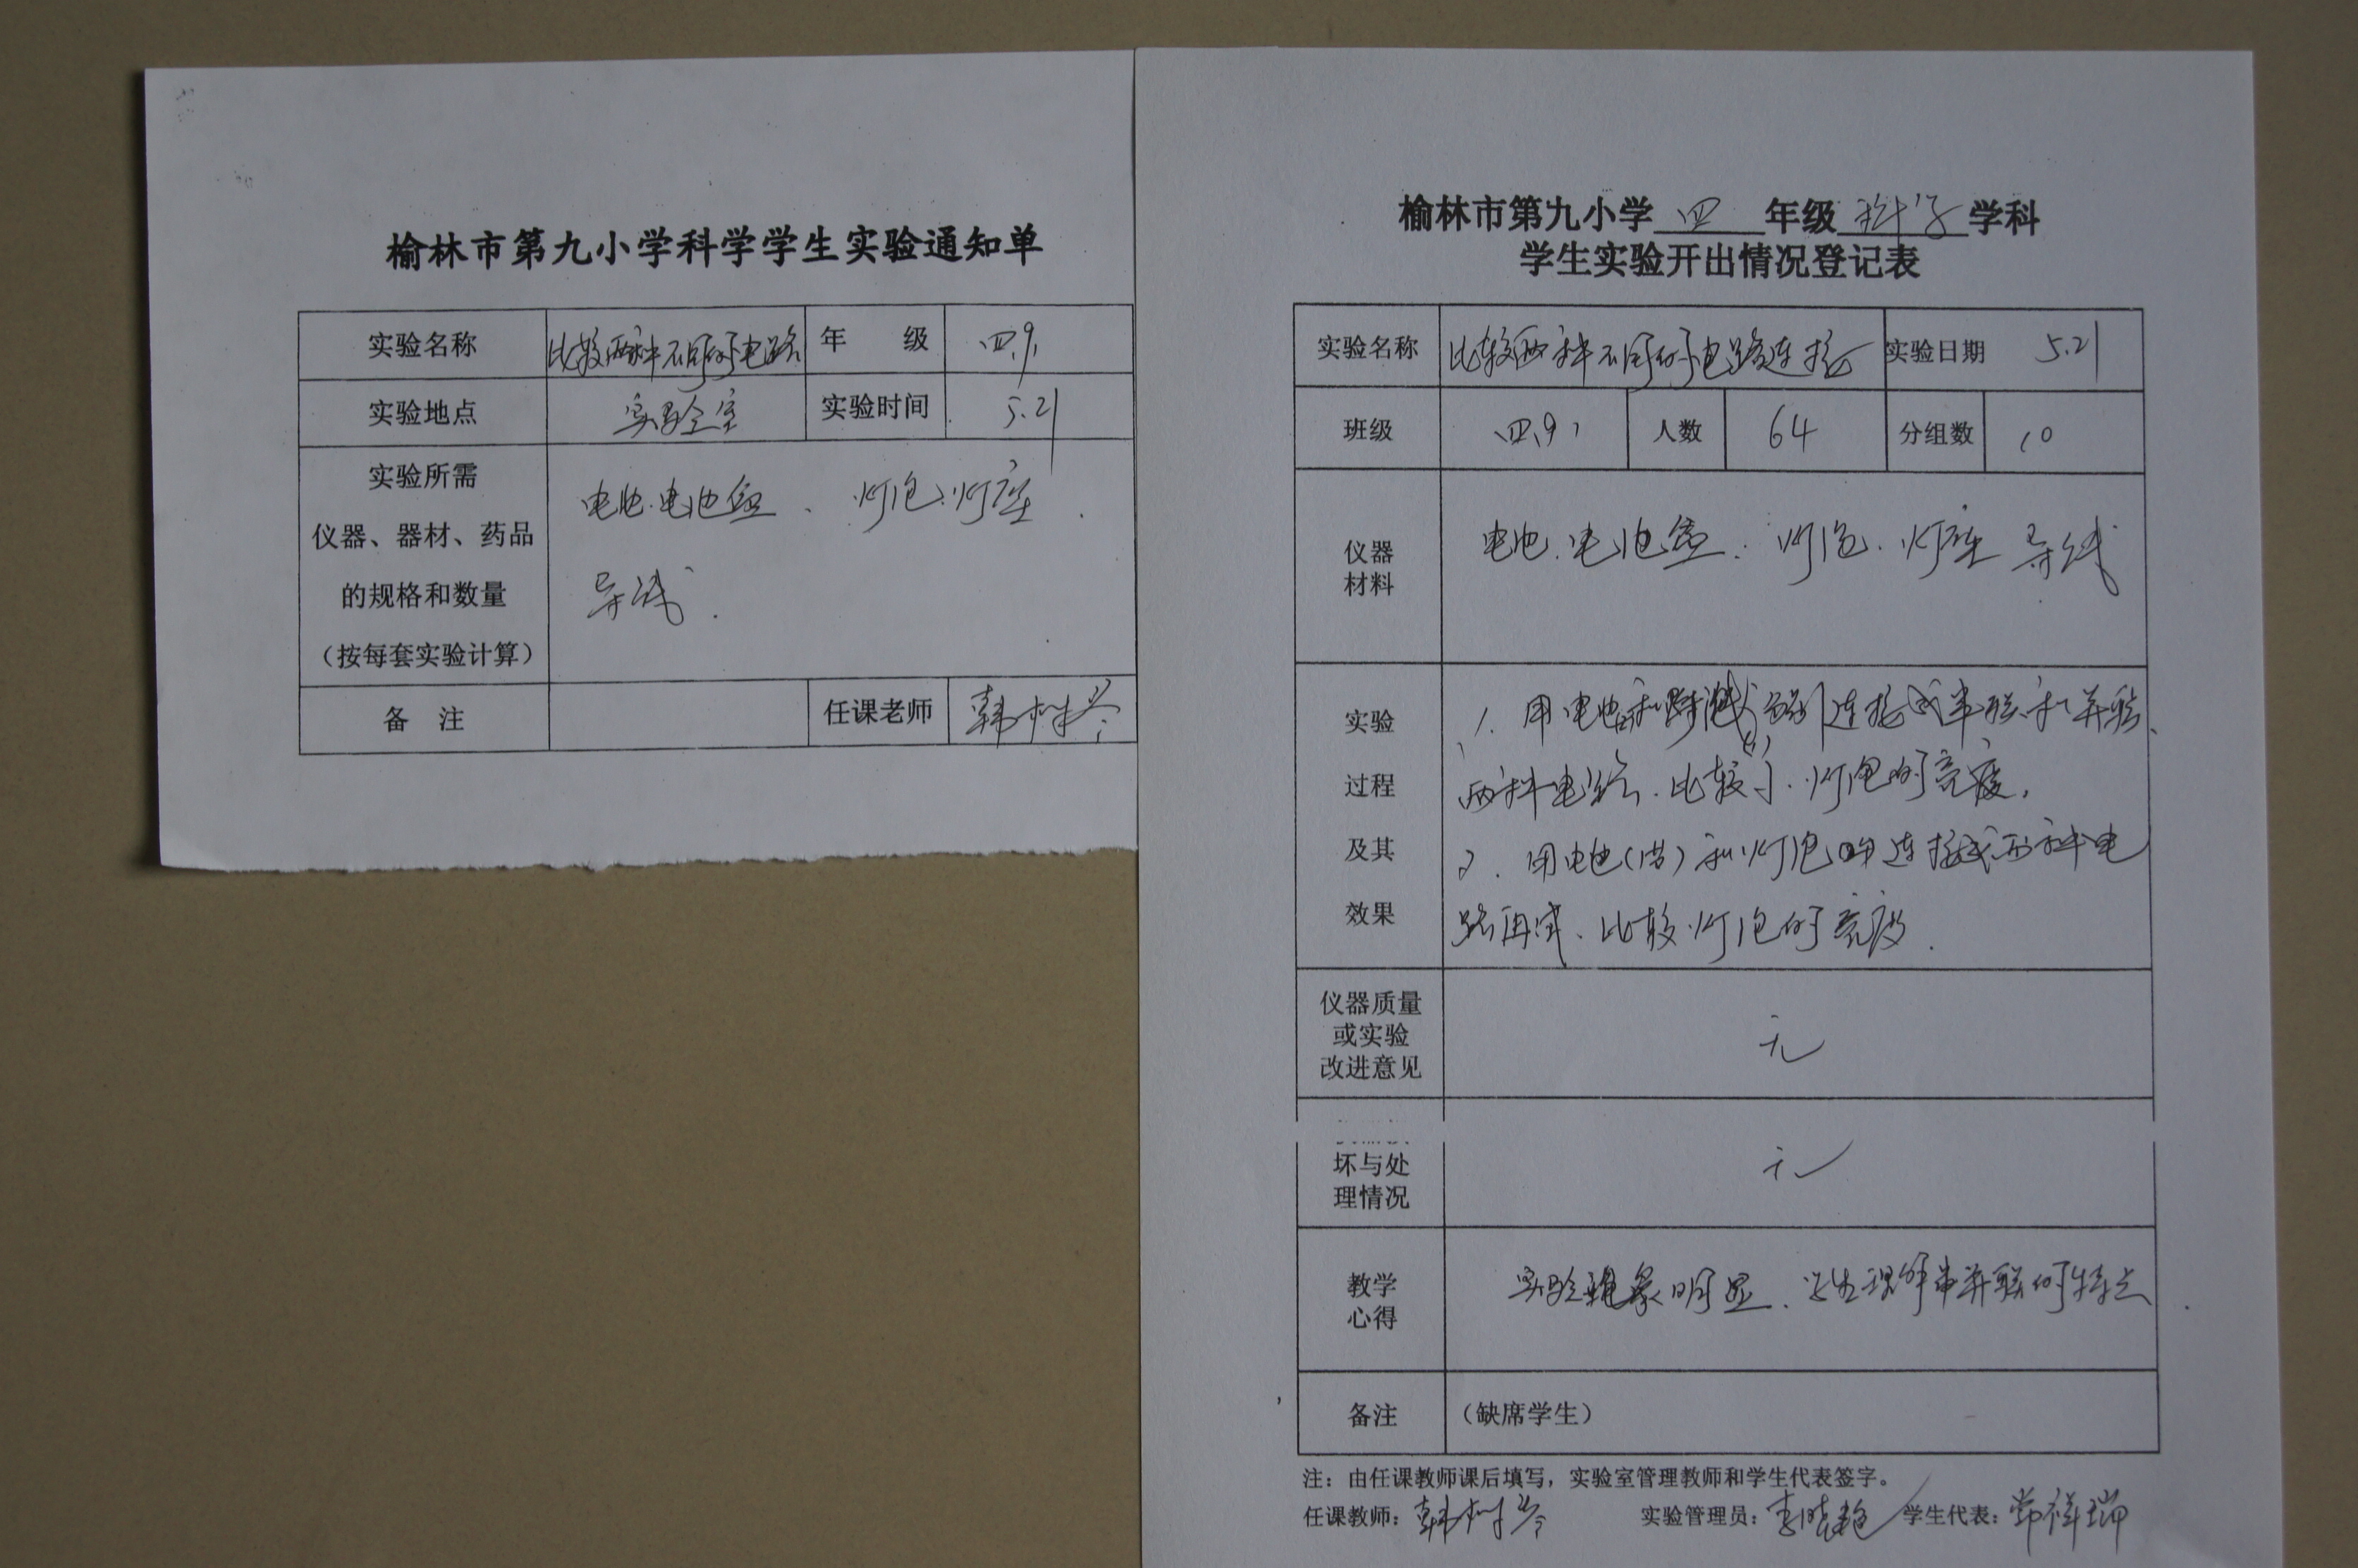 榆林市第九小学科学学生实验通知单
实验名称 比较两种不同的电路 年 级 四.9.
实验地点 实验室 实验时间 5.21
实验所需
仪器、器材、药品
的规格和数量
（按每套实验计算）
电池.电池盒、灯泡.灯座.
导线.
备 注 任课老师 韩树岑
榆林市第九小学 四 年级 科学 学科
学生实验开出情况登记表
实验名称 比较两种不同的电路连接 实验日期 5.21
班级 四.9. 人数 64 分组数 10
仪器
材料
电池.电池盒.灯泡.灯座 导线
实验
过程
及其
效果
1. 用电池和 连接成串联和并联
两种电路.比较小灯泡的亮度.
2. 用电池(节)和灯泡 连接成两种电
路再试、比较灯泡的亮度.
仪器质量
或实验
改进意见
无
坏与处
理情况
无
教学
心得
实验现象明显.学生理解串并联的特点.
备注 （缺席学生）
注：由任课教师课后填写，实验室管理教师和学生代表签字。
任课教师：韩树岑 实验管理员：李晓艳 学生代表：常祥瑞